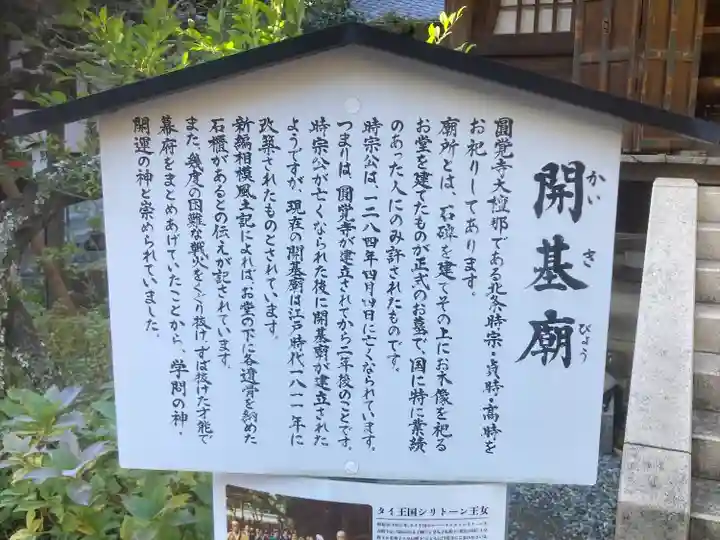 開基廟
かい き びょう
圓覚寺大檀那である北条時宗・貞時・高時を
お祀りしてあります。
廟所とは、石碑を建てその上にお木像を祀る
お堂を建てたものが正式のお墓で、国に特に業績
のあった人にのみ許されたものです。
時宗公は、一二八四年四月四日に亡くなられています。
つまりは、圓覚寺が建立されてから二年後のことです。
時宗公が亡くなられた後に開基廟が建立された
ようですが、現在の開基廟は江戸時代一八一一年に
改築されたものとされています。
新編相模風土記によれば、お堂の下に各遺骨を納めた
石櫃があるとの伝えが記されています。
また、幾度の困難な戦いをくぐり抜け、ずば抜けた才能で
幕府をまとめあげていたことから、学問の神・
開運の神と崇められていました。
タイ王国シリントーン王女